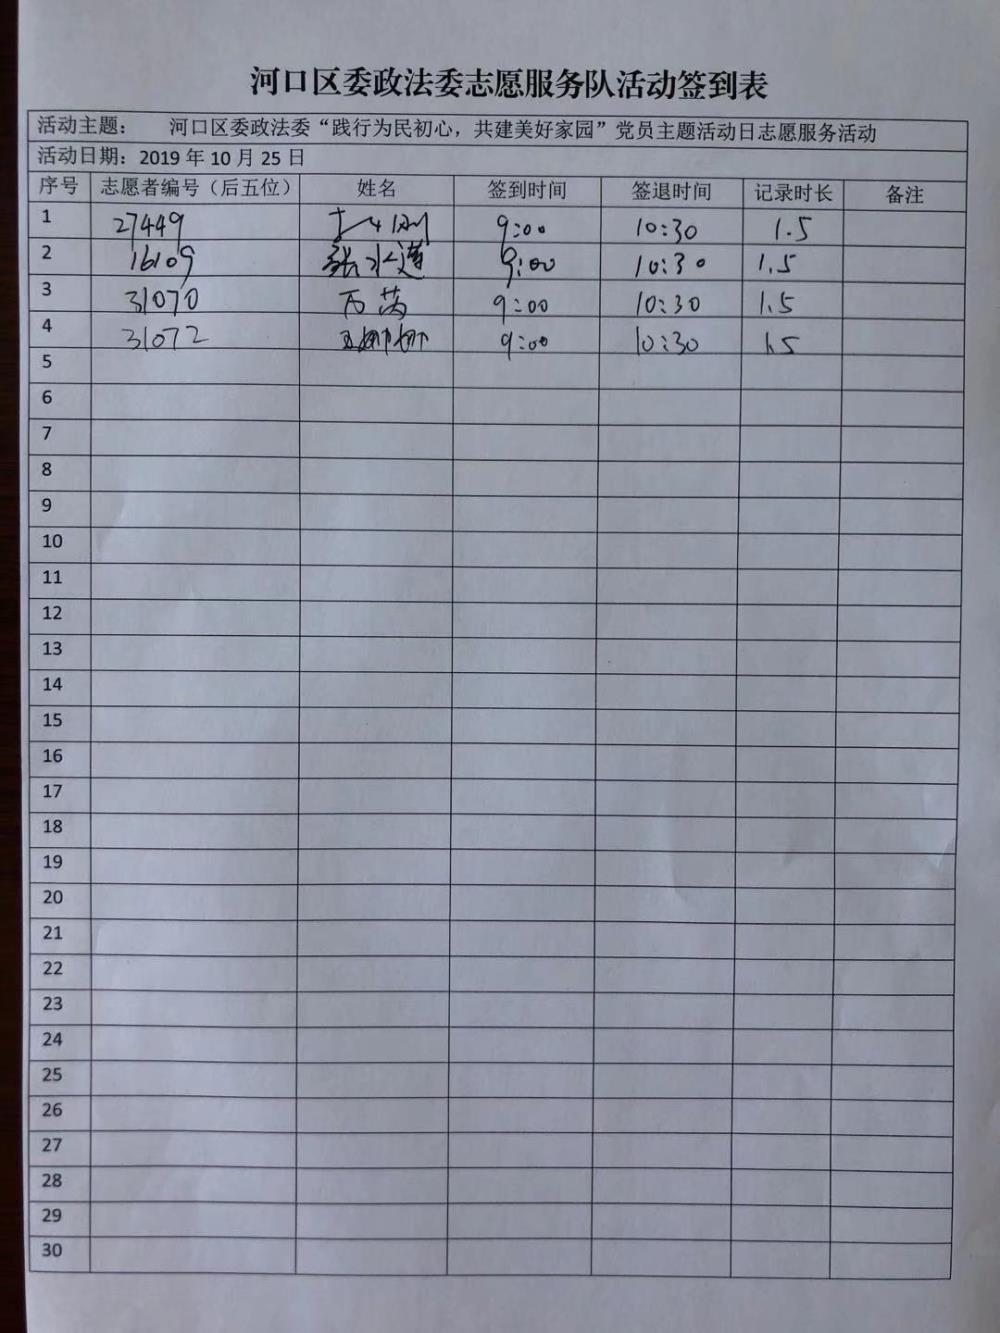 河口区委政法委志愿服务队活动签到表
活动主题： 河口区委政法委“践行为民初心，共建美好家园”党员主题活动日志愿服务活动
活动日期：2019 年 10 月 25 日
序号 志愿者编号（后五位） 姓名 签到时间 签退时间 记录时长 备注
1 27449 9:00 10:30 1.5
2 16109 张水莲 9:00 10:30 1.5
3 31070 9:00 10:30 1.5
4 31072 王娜娜 9:00 10:30 1.5
5
6
7
8
9
10
11
12
13
14
15
16
17
18
19
20
21
22
23
24
25
26
27
28
29
30